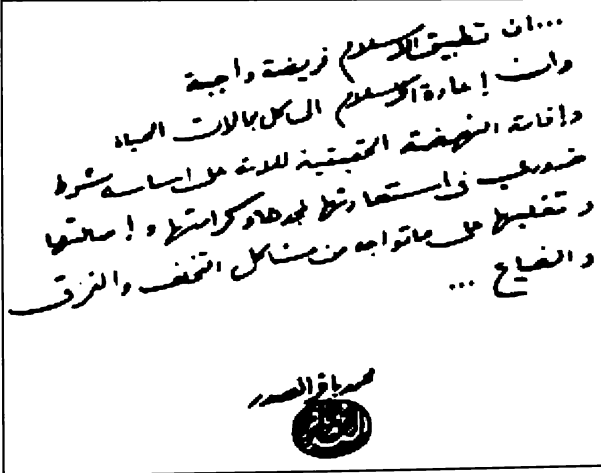 ...ان تطبيق الاسلام فريضة واجبة
وان إعادة الاسلام الى كل مجالات الحياة
وإقامة النهضة الحقيقية للامة على اساسه شرط
ضروري في استعادتها لمجدها وكرامتها و إصالتها
و تغلبها على ماتواجه من مشاكل التخلف والتمزق
و الضياع ...
محمد باقر الصدر